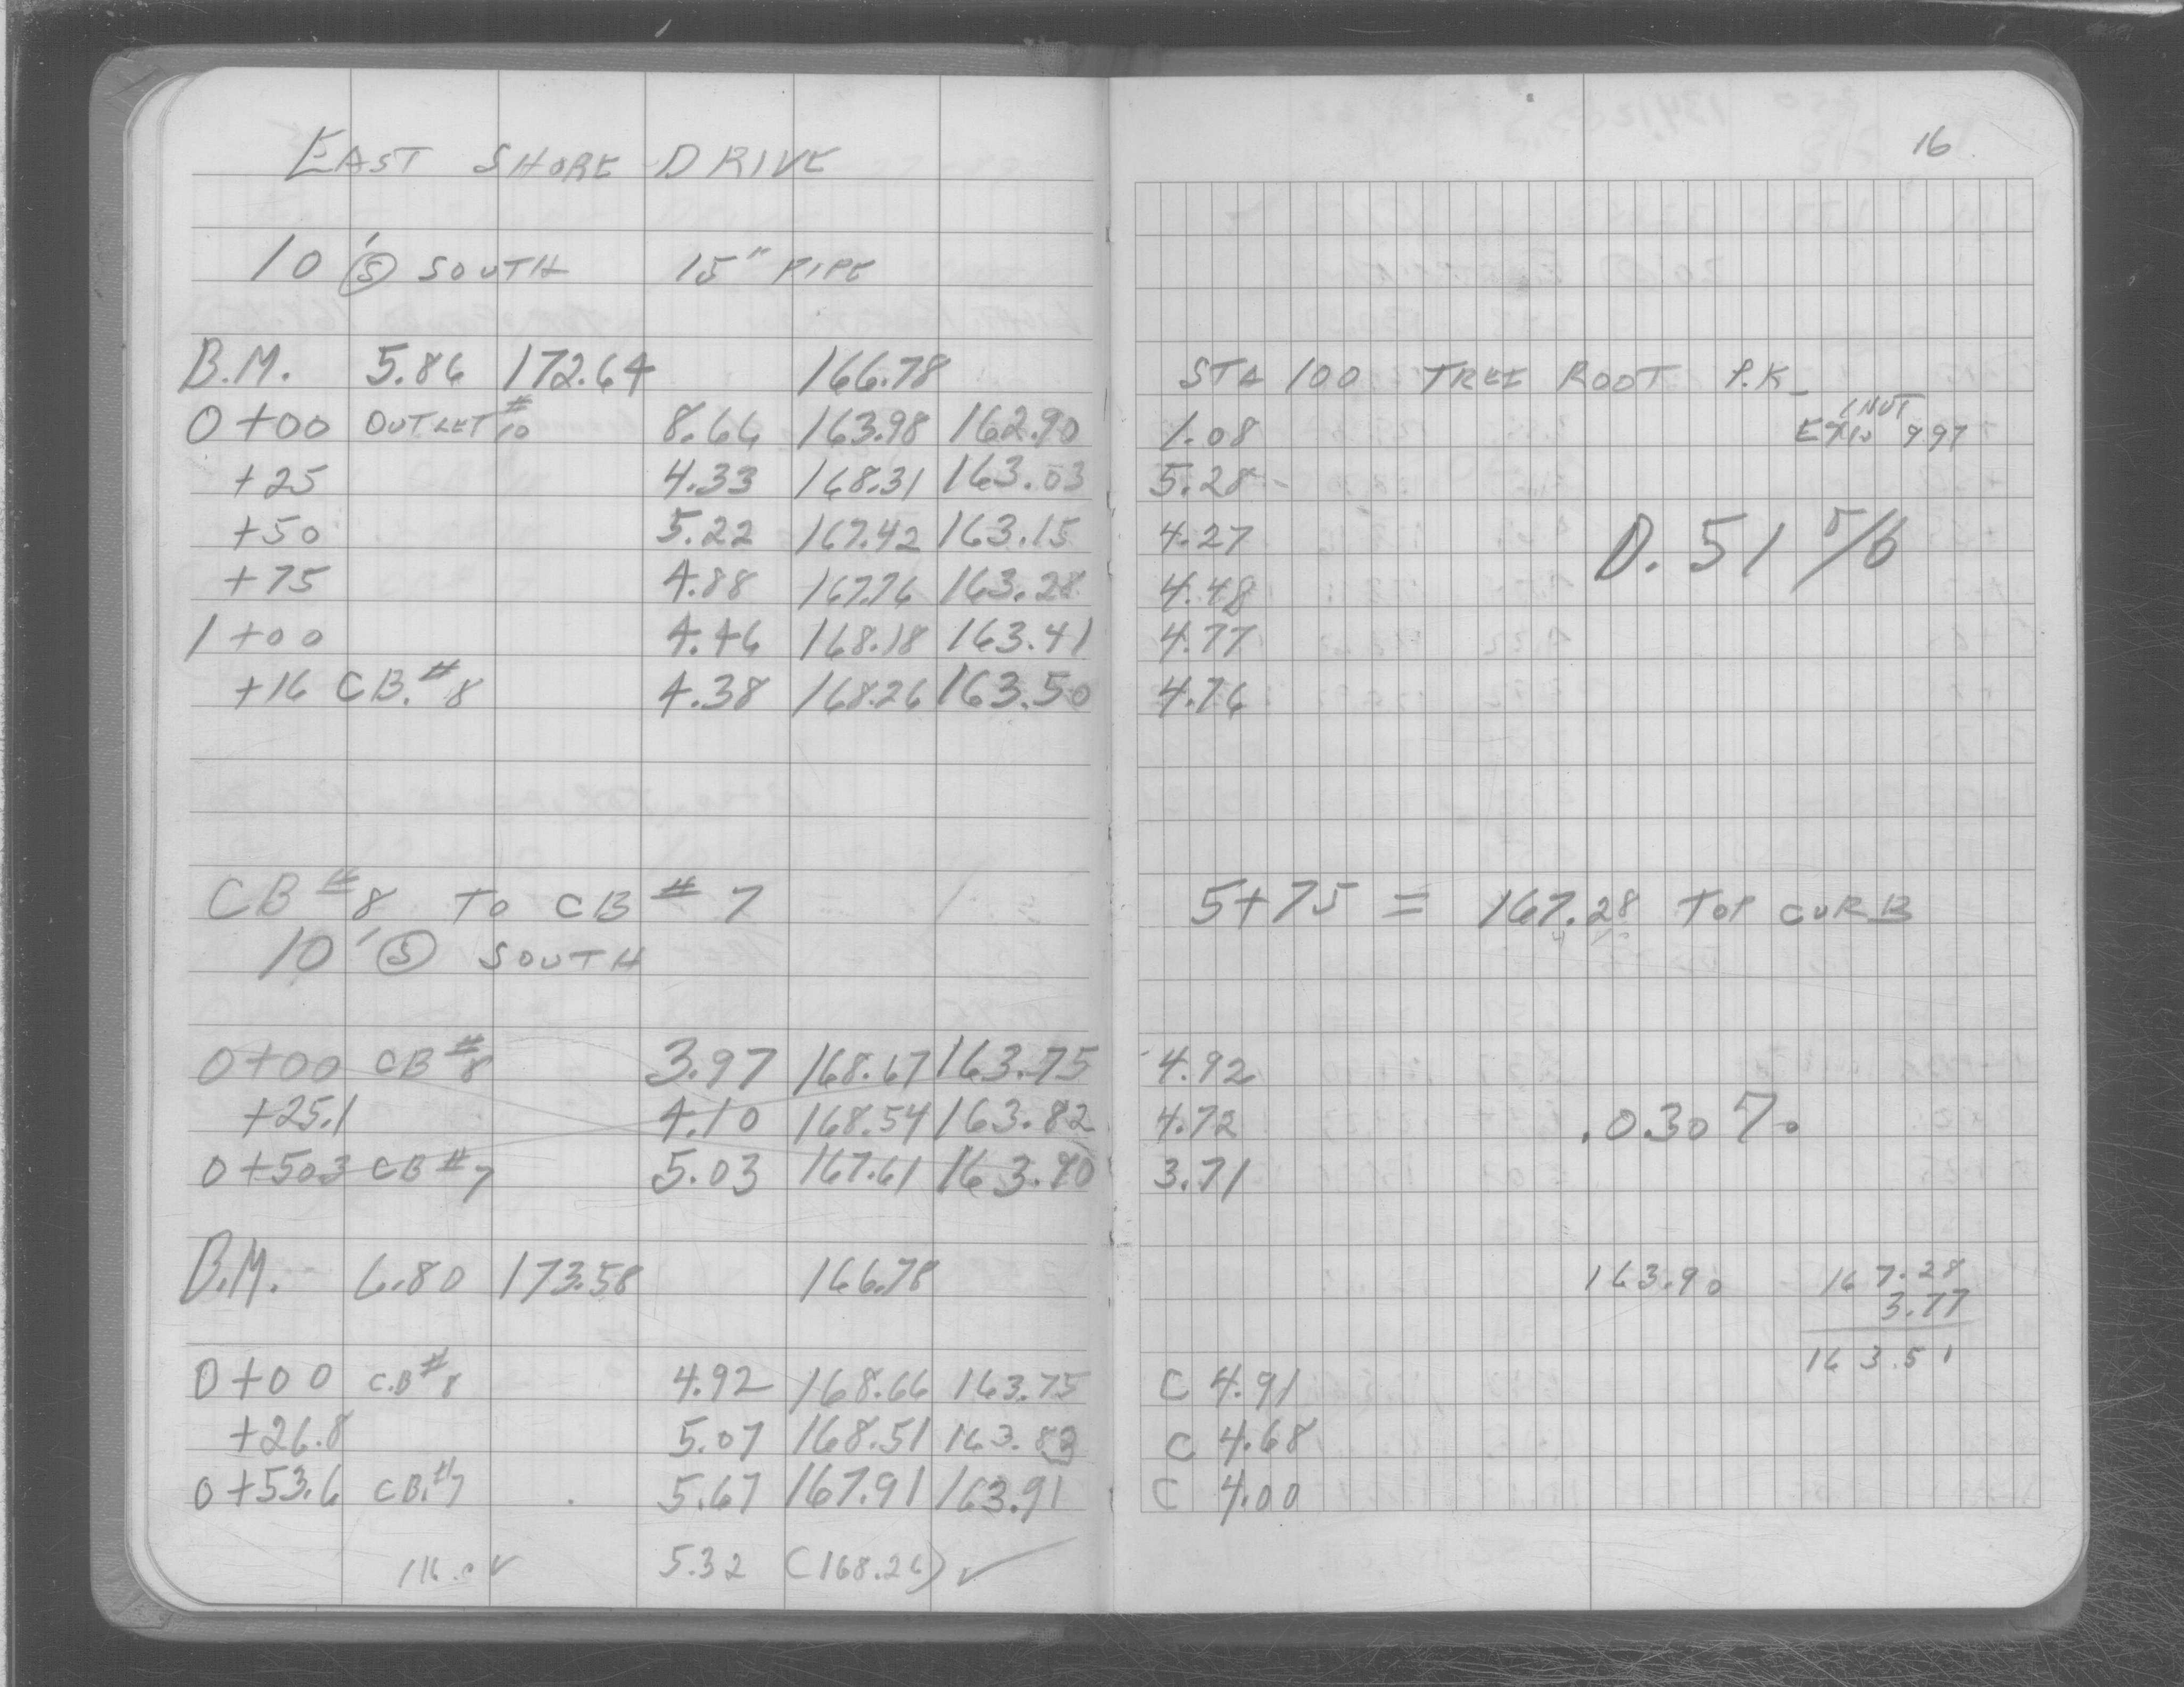 EAST SHORE DRIVE
10' Ⓢ SOUTH 15" PIPE
B.M. 5.86 172.64 166.78
0+00 OUTLET #10 8.66 163.98 162.90
+25 4.33 168.31 163.03
+50 5.22 167.42 163.15
+75 4.88 167.76 163.28
1+00 4.46 168.18 163.41
+16 CB.#8 4.38 168.26 163.50
CB #8 TO CB #7
10' Ⓢ SOUTH
0+00 CB #8 3.97 168.67 163.75
+25.1 4.10 168.54 163.82
0+503 CB #7 5.03 167.61 163.90
B.M. 6.80 173.58 166.78
0+00 C.B #8 4.92 168.66 163.75
+26.8 5.07 168.51 163.83
0+53.6 CB.#7 5.67 167.91 163.91
116.0 ✓ 5.32 (168.26) ✓
16
STA 100 TREE ROOT P.K.
1.08 INUT
997
5.28
4.27 0.51 %
4.48
4.77
4.76
5+75 = 167.28 TOP CURB
4.92
4.72 .030 %
3.71
163.90 167.28
3.77
163.51
C 4.91
C 4.68
C 4.00